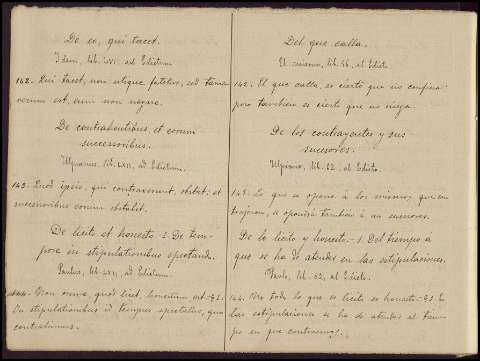 De eo, qui tacet.
Idem, lib. LVI. ad Edictum
142. Qui tacet, non utique fatetur, sed tamen
verum est, eum non negare.
De contrahentibus et eorum
successoribus.
Ulpianus, lib. LXII, ad Edictum.
143. Quod ipsis, qui contraxerunt, obstat, et
successoribus eorum obstabit.
De licito et honesto. 1. De tem-
pore in stipulationibus spectando.
Paulus, lib. LXII, ad Edictum.
144. Non omne quod licet, honestum est. § 1.
In stipulationibus id tempus spectatur, quo
contrahimus.
Del que calla.
El mismo, lib. 56, al Edicto.
142. El que calla, es cierto que no confiesa
pero tambien es cierto que no niega.
De los contrayentes y sus
sucesores.
Ulpiano, lib. 62, al Edicto.
143. Lo que se opone á los mismos que con-
trajeron, se opondrá tambien á sus sucesores.
De lo lícito y honesto. 1. Del tiempo á
que se ha de atender en las estipulaciones.
Paulo, lib. 62, al Edicto.
144. No todo lo que es lícito es honesto. § 1 En
las estipulaciones se ha de atender al tiem-
po en que contraemos.